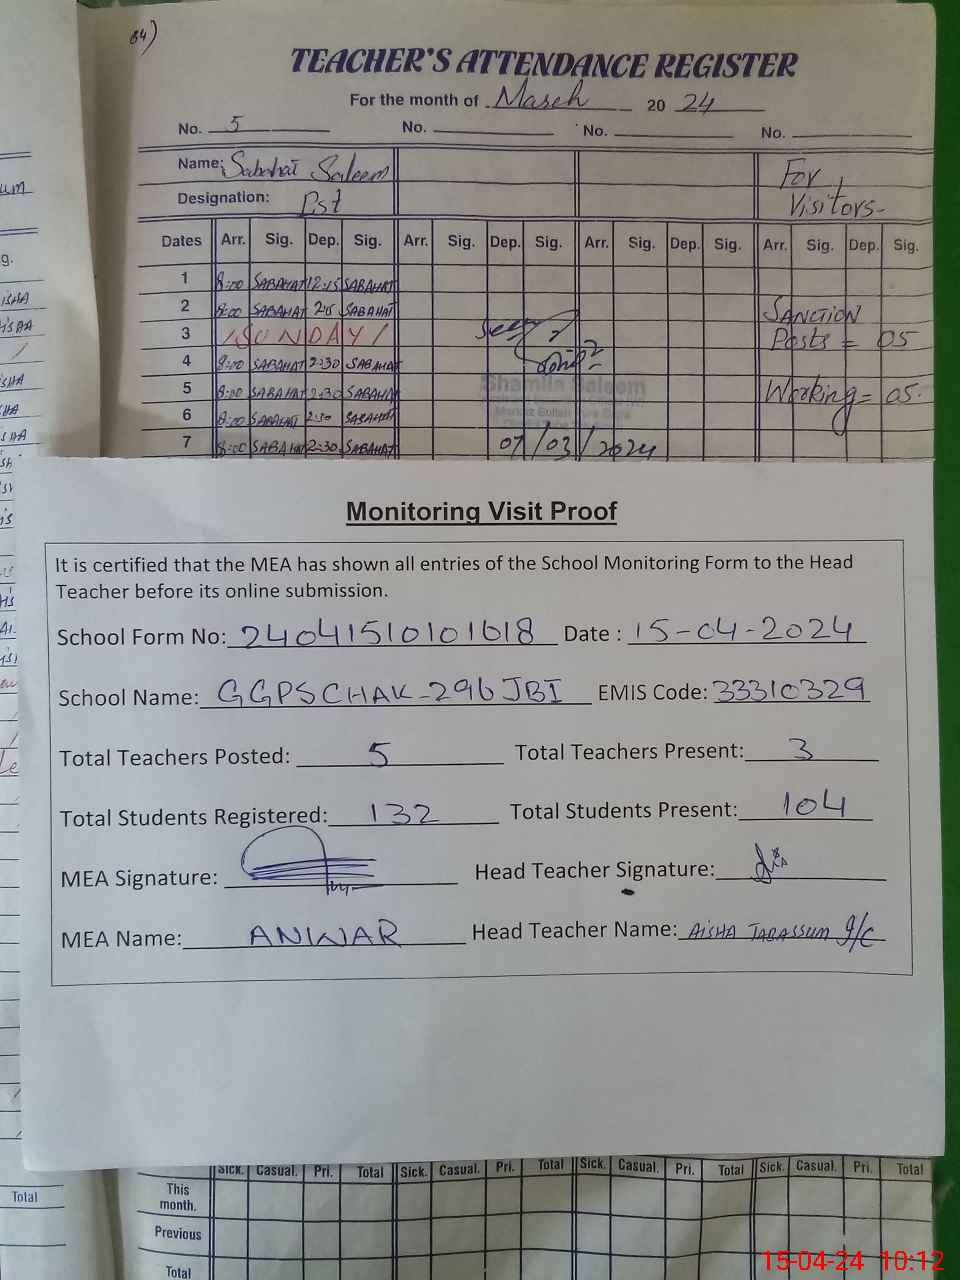 84)
TEACHER'S ATTENDANCE REGISTER
For the month of March 2024
No. 5 No. No. No.
Name: Sabahat Saleem For
Designation: Pst Visitors-
Dates Arr. Sig. Dep. Sig. Arr. Sig. Dep. Sig. Arr. Sig. Dep. Sig. Arr. Sig. Dep. Sig.
1 8:00 SABAHAT 12:15 SABAHAT
2 8:00 SABAHAT SABAHAT SANCTION
3 /SUNDAY/ Seen Posts = 05
4 8:00 SABAHAT 2:30 SABAHAT
Shamila Saleem
5 8:00 SABAHAT 2:30 SABAHAT Working = 05.
6 8:00 SABAHAT 2:30 SABAHAT
7 8:00 SABAHAT 2:30 SABAHAT 07/03/2024
Monitoring Visit Proof
It is certified that the MEA has shown all entries of the School Monitoring Form to the Head
Teacher before its online submission.
School Form No: 24041510101618 Date : 15-04-2024
School Name: GGPS CHAK-296 JBI EMIS Code: 33310329
Total Teachers Posted: 5 Total Teachers Present: 3
Total Students Registered: 132 Total Students Present: 104
MEA Signature: Head Teacher Signature:
MEA Name: ANWAR Head Teacher Name: AISHA TABASSUM I/C
Sick. Casual. Pri. Total Sick. Casual. Pri. Total Sick. Casual. Pri. Total Sick. Casual. Pri. Total
This
month.
Total
Previous
Total
15-04-24 10:12